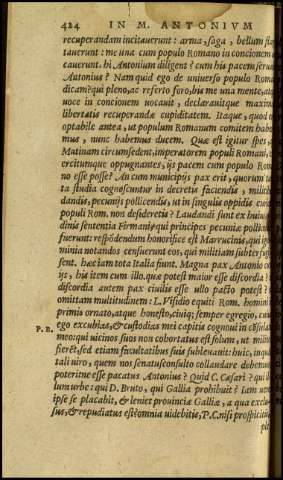 424 IN M. ANTONIVM
recuperandam incitauerunt: arma, saga, bellum
tauerunt: me una cum populo Romano in concionem
cauerunt. hi Antonium diligent? cum his pacem seru
Antonius? Nam quid ego de uniuerso populo Roma
dicam? qui pleno, ac referto foro, bis me una mente, atq
uoce in concionem uocauit, declarauitque maxim
libertatis recuperandæ cupiditatem. Itaque, quod
optabile antea, ut populum Romanum comitem habe
mus, nunc habemus ducem. Quæ est igitur spes,
Mutinam circunsedent, imperatorem populi Romani,
ercitumque oppugnantes, ijs pacem cum populo Ro
no esse posse? An cum municipijs pax erit, quorum ta
ta studia cognoscuntur in decretis faciendis, militib
dandis, pecunijs pollicendis, ut in singulis oppidis
populi Rom. non desideretis? Laudandi sunt ex huius
dinis sententia Firmani, qui principes pecuniæ pollicen
fuerunt: respõdendum honorifice est Marrucinis, qui
minia notandos censuerunt eos, qui militiam subterfug
sent. hæc iam tota Italia fiunt. Magna pax Antonio
ijs, his item cum illo. quæ potest maior esse discordia?
discordia autem pax ciuilis esse ullo pacto potest?
omittam multitudinem: L. Visidio equiti Rom. homini
primis ornato, atque honesto, ciuiq; semper egregio,
P. R. ego excubias, & custodias mei capitis cognoui in cõsula
meo: qui uicinos suos non cohortatus est solum, ut
fierẽt, sed etiam facultatibus suis subleuauit: huic, inqu
tali uiro, quem nos senatusconsulto collaudare debema
poteritne esse pacatus Antonius? Quid C. Cæsari? qui
lum urbe: qui D. Bruto, qui Gallia prohibuit? Iam uero
ipse se placabit, & leniet prouinciæ Galliæ, a qua
sus, & repudiatus est? omnia uidebitis, P. C. nisi prospicitis,